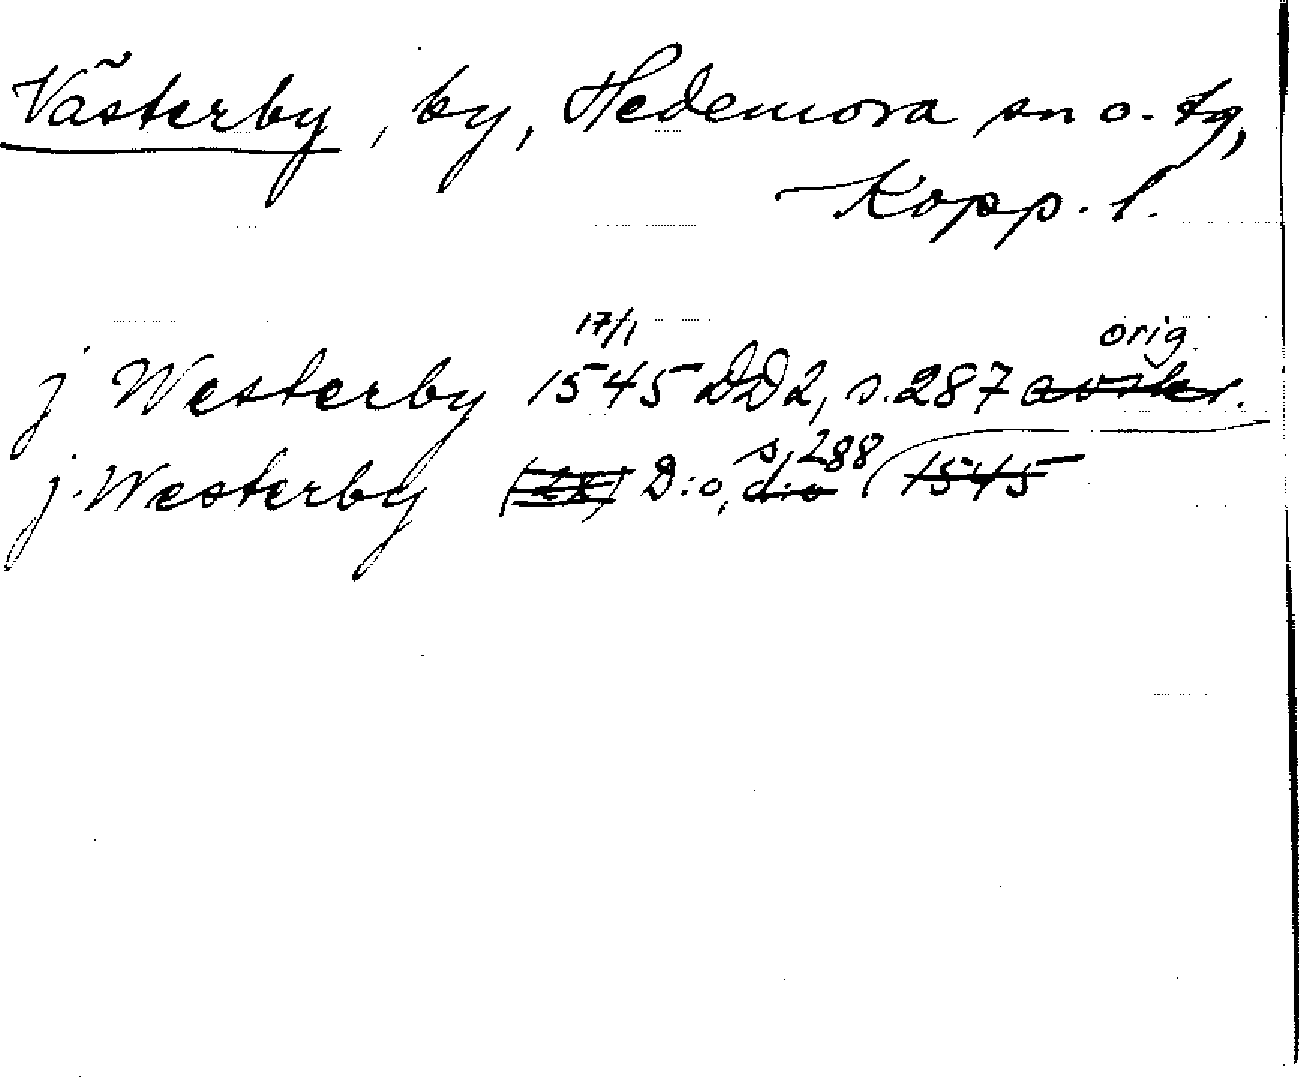 Västerby, by, Hedemora sn o. tg,
Kopp. l.
17/1 orig.
j Westerby 1545 DD2, s. 287 avskr.
s. 288
j. Westerby D:o, d:o 1545